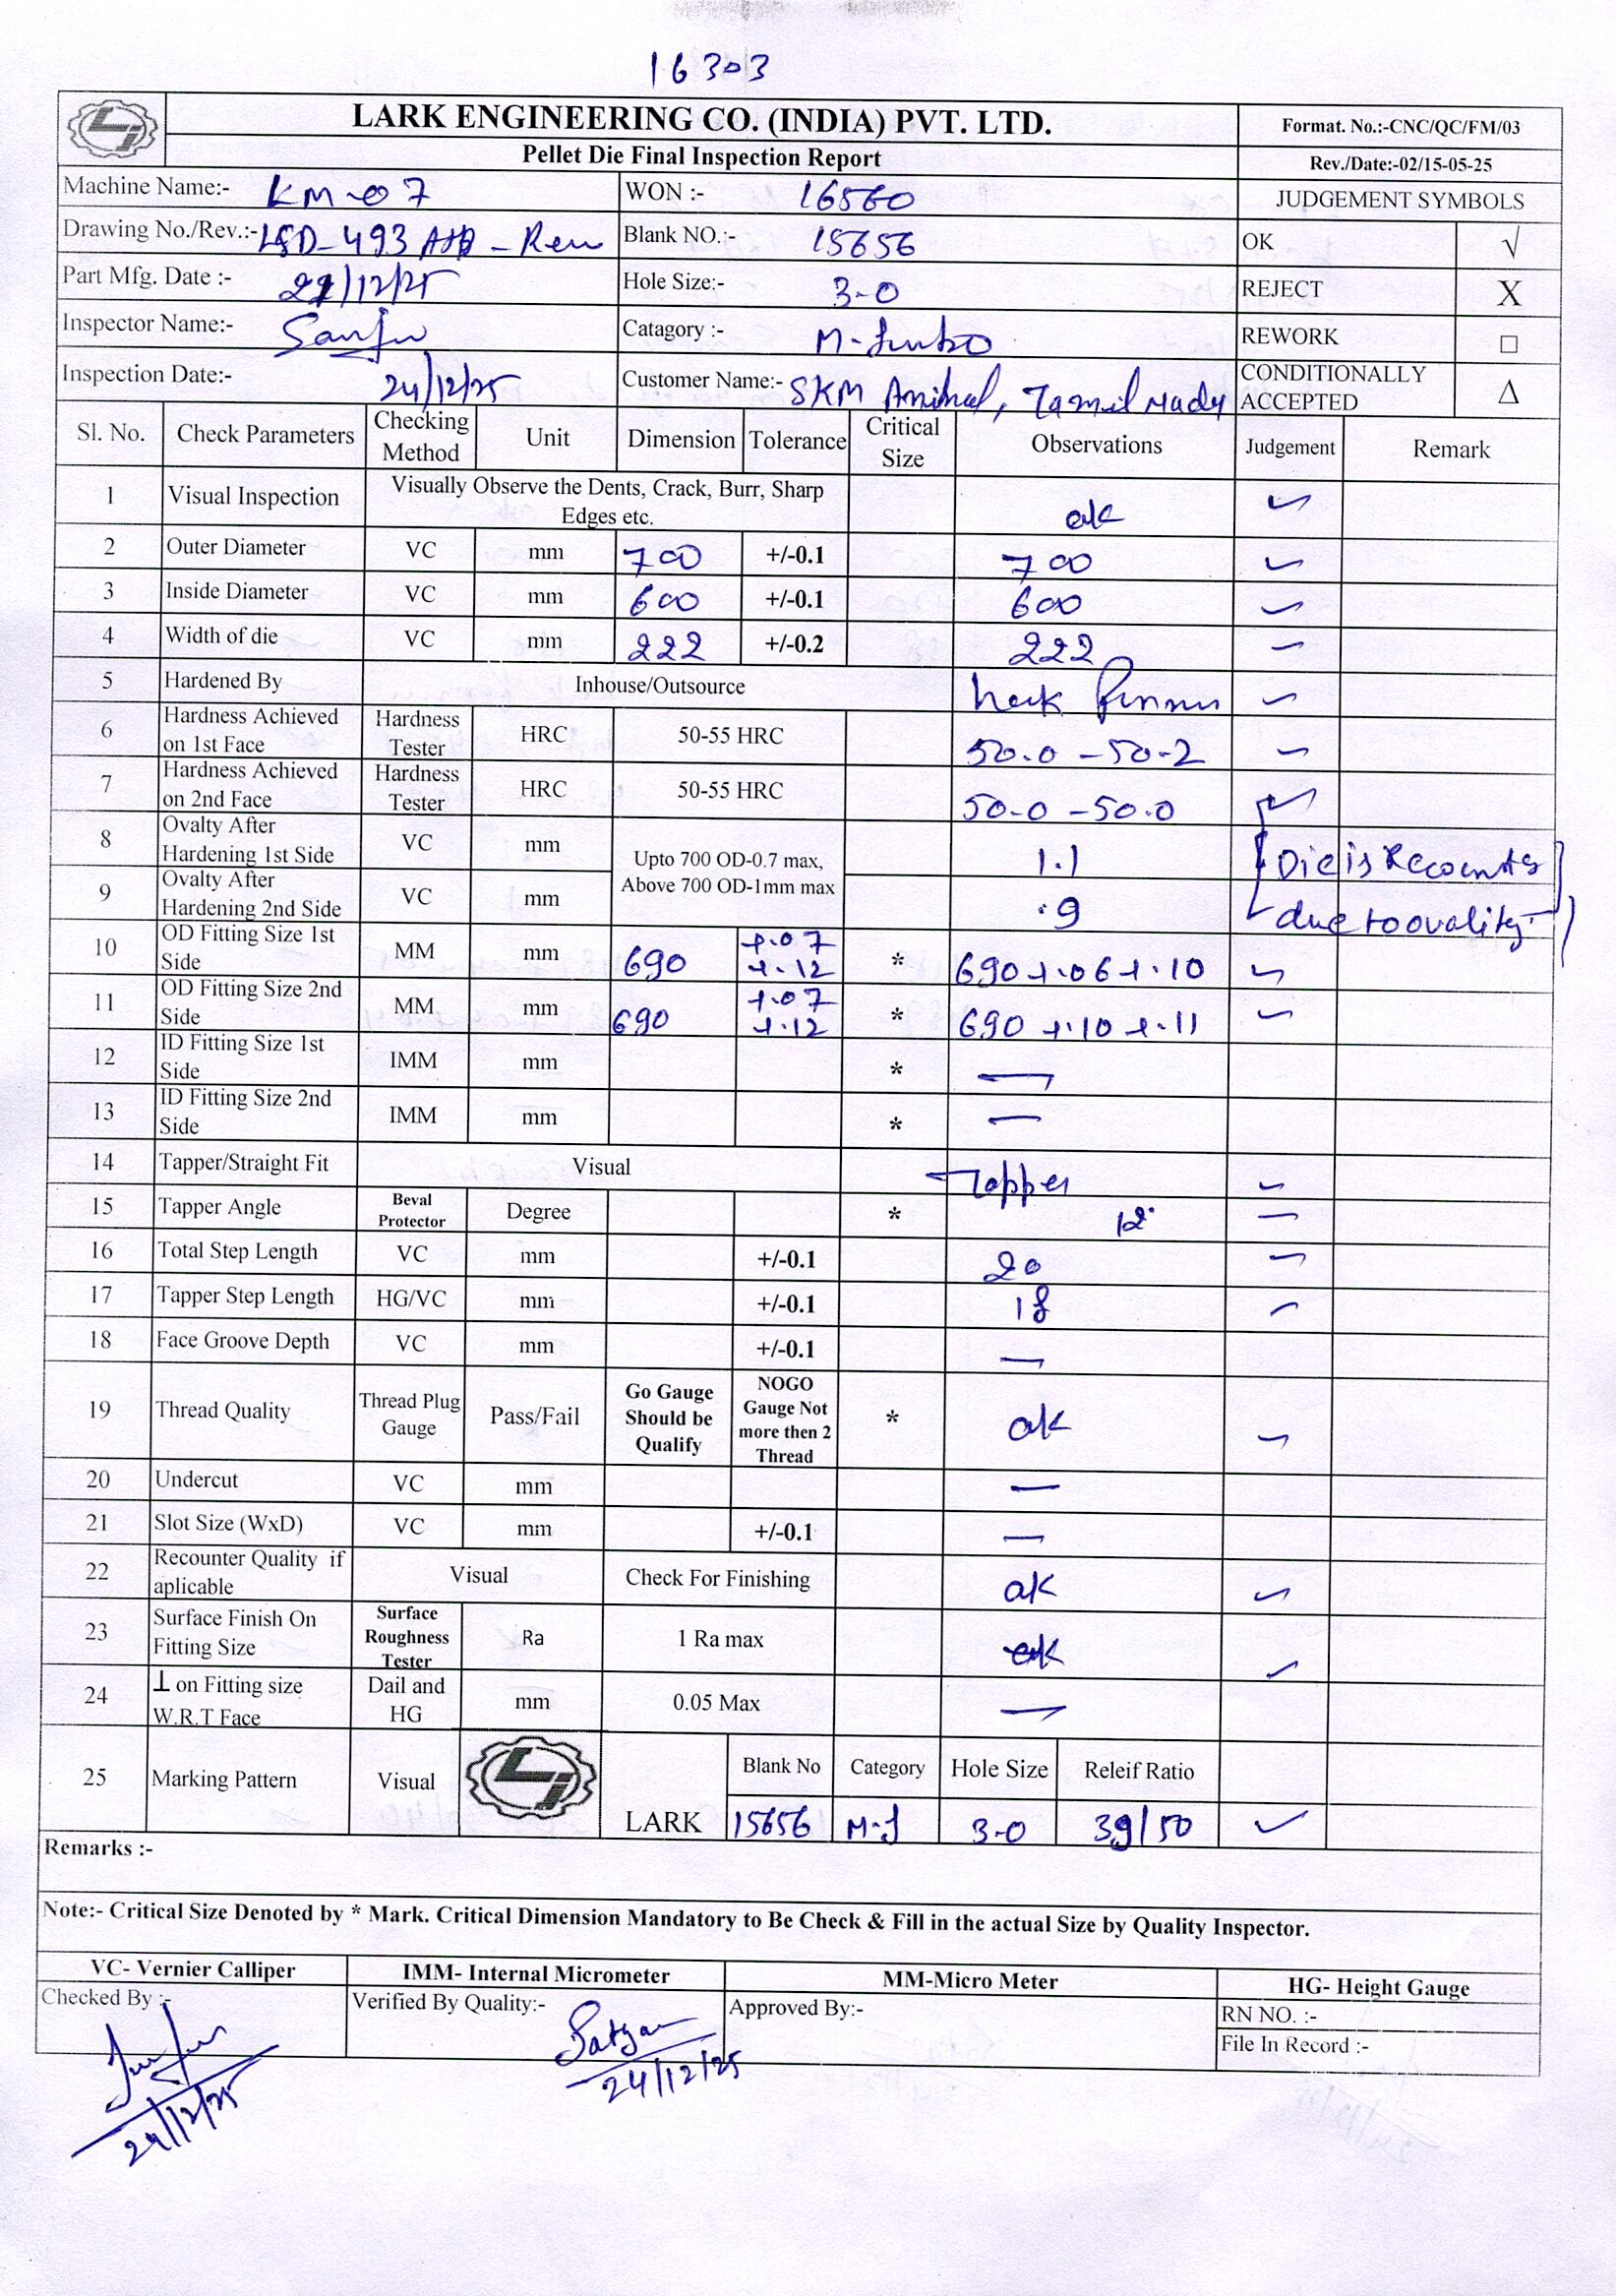 16303
LARK ENGINEERING CO. (INDIA) PVT. LTD.
Format. No.:-CNC/QC/FM/03
Pellet Die Final Inspection Report
Rev./Date:-02/15-05-25
Machine Name:- KM-07 WON :- 16560 JUDGEMENT SYMBOLS
Drawing No./Rev.:- LSD-493 Blank NO.:- 15656 OK √
Part Mfg. Date :- /12/25 Hole Size:- 3.0 REJECT X
Inspector Name:- Sanju Catagory :- M-Jumbo REWORK □
Inspection Date:- 24/12/25 Customer Name:- SKM Animal, Tamil Nadu CONDITIONALLY ACCEPTED Δ
Sl. No. Check Parameters Checking Method Unit Dimension Tolerance Critical Size Observations Judgement Remark
1 Visual Inspection Visually Observe the Dents, Crack, Burr, Sharp Edges etc. ok ✓
2 Outer Diameter VC mm 700 +/-0.1 700 ✓
3 Inside Diameter VC mm 600 +/-0.1 600 ✓
4 Width of die VC mm 222 +/-0.2 222 ✓
5 Hardened By Inhouse/Outsource ✓
6 Hardness Achieved on 1st Face Hardness Tester HRC 50-55 HRC 50.0 - 50.2 ✓
7 Hardness Achieved on 2nd Face Hardness Tester HRC 50-55 HRC 50.0 - 50.0 ✓
8 Ovalty After Hardening 1st Side VC mm Upto 700 OD-0.7 max, Above 700 OD-1mm max 1.1 Die is
9 Ovalty After Hardening 2nd Side VC mm .9 due to ovality
10 OD Fitting Size 1st Side MM mm 690 +.07 +.12 * 690 +.06 +.10 ✓
11 OD Fitting Size 2nd Side MM mm 690 +.07 +.12 * 690 +.10 +.11 ✓
12 ID Fitting Size 1st Side IMM mm * —
13 ID Fitting Size 2nd Side IMM mm * —
14 Tapper/Straight Fit Visual Tapper ✓
15 Tapper Angle Beval Protector Degree * 12° ✓
16 Total Step Length VC mm +/-0.1 20 ✓
17 Tapper Step Length HG/VC mm +/-0.1 18 ✓
18 Face Groove Depth VC mm +/-0.1 —
19 Thread Quality Thread Plug Gauge Pass/Fail Go Gauge Should be Qualify NOGO Gauge Not more then 2 Thread * ok ✓
20 Undercut VC mm —
21 Slot Size (WxD) VC mm +/-0.1 —
22 Recounter Quality if aplicable Visual Check For Finishing ok ✓
23 Surface Finish On Fitting Size Surface Roughness Tester Ra 1 Ra max ok ✓
24 ⊥ on Fitting size W.R.T Face Dail and HG mm 0.05 Max —
25 Marking Pattern Visual LARK Blank No Category Hole Size Releif Ratio
15656 M-J 3.0 39/50 ✓
Remarks :-
Note:- Critical Size Denoted by * Mark. Critical Dimension Mandatory to Be Check & Fill in the actual Size by Quality Inspector.
VC- Vernier Calliper IMM- Internal Micrometer MM-Micro Meter HG- Height Gauge
Checked By :- Verified By Quality:- Approved By:- RN NO. :-
File In Record :-
Satyam
24/12/25
24/12/25